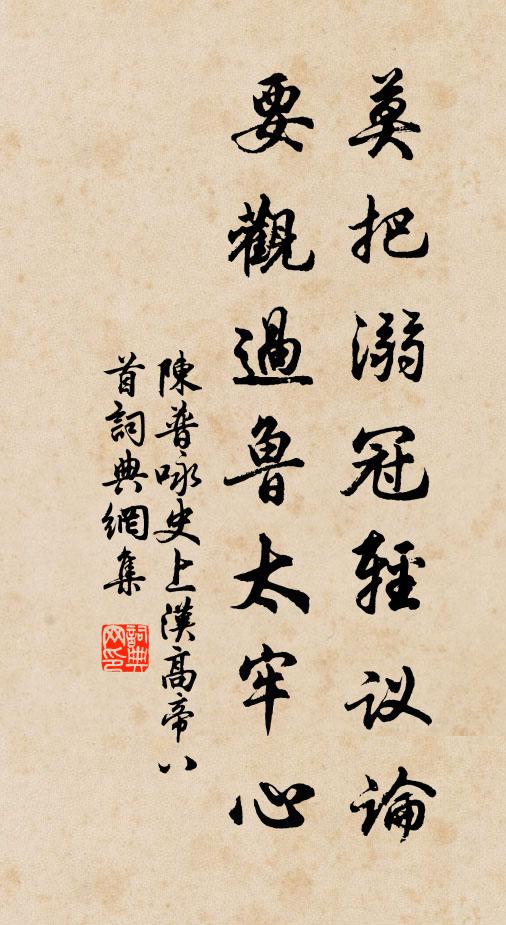 莫把溺冠輕议論
要觀過魯太牢心
陳普咏史上漢高帝八
首詞典網集
詞典
网印